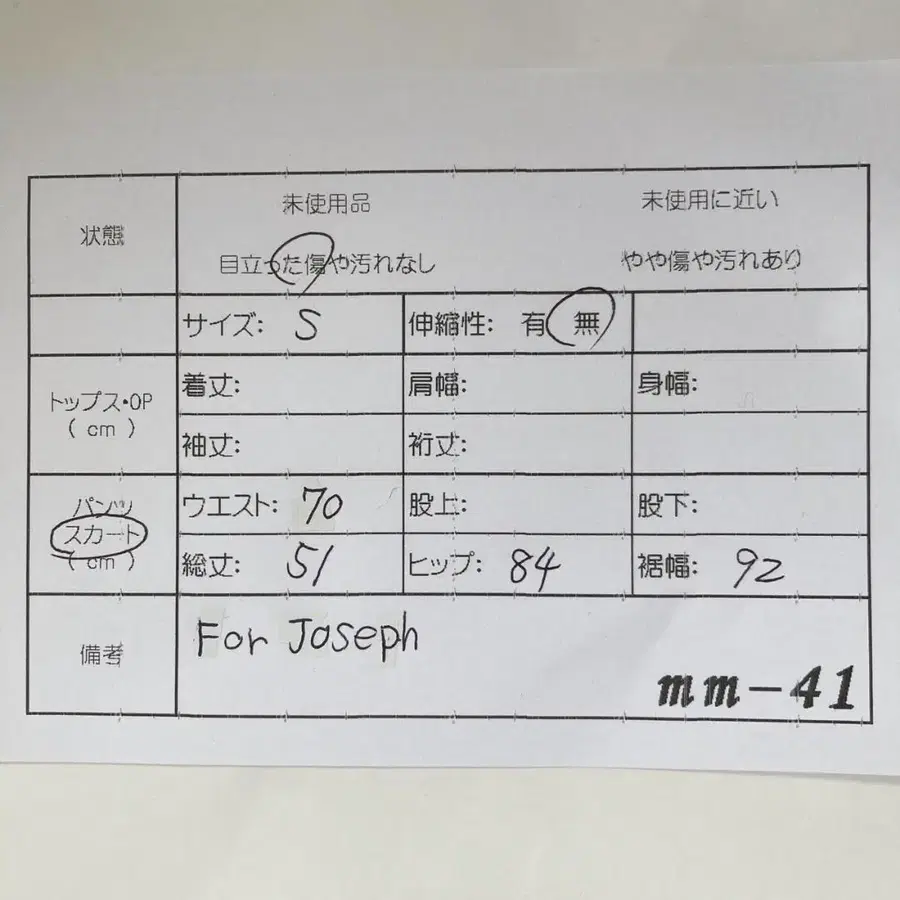 状態
未使用品 未使用に近い
目立った傷や汚れなし やや傷や汚れあり
サイズ: S 伸縮性: 有 無
トップス・OP
( cm )
着丈: 肩幅: 身幅:
袖丈: 裄丈:
パンツ
スカート
( cm )
ウエスト: 70 股上: 股下:
総丈: 51 ヒップ: 84 裾幅: 92
備考
For Joseph
mm-41